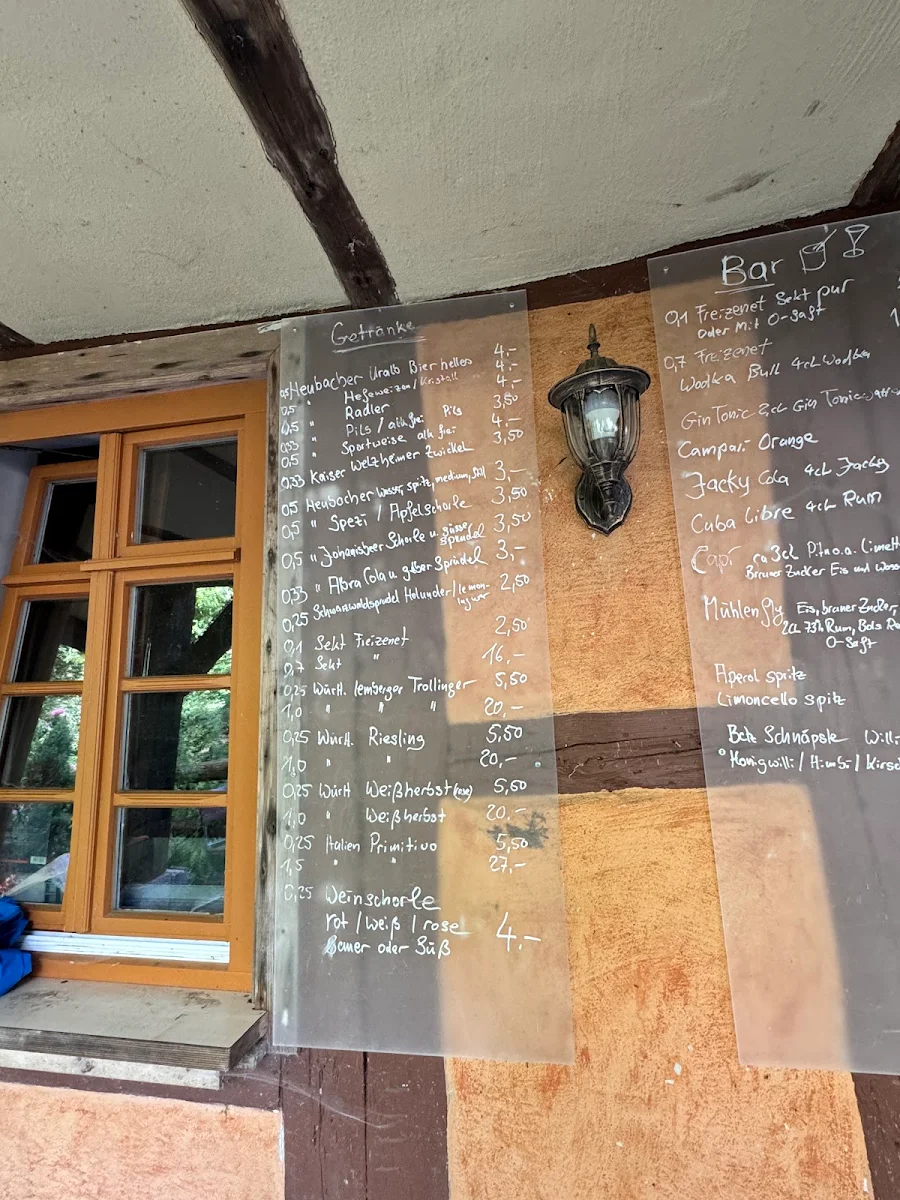 Getränke
0,5 Heubacher Uralb Bier helles 4.-
0,5 " Hefeweizen/Kristall 4.-
0,5 " Radler 4.-
0,33 " Pils / alk.frei Pils 3,50
0,5 " Sportweise alk.frei 4.-
0,33 Kaiser Welzheimer Zwickel 3,50
0,5 Heubacher Wasser, spitz, medium, still 3,-
0,5 " Spezi / Apfelschorle 3,50
0,5 " Johannisbeer Schorle u. süsser Sprudel 3,50
0,33 " Abra Cola u. gelber Sprudel 3,-
0,25 Schwarzwaldsprudel Holunder/lemon-ingwer 2,50
0,1 Sekt Freizenet 2,50
0,7 Sekt " 16,-
0,25 Württ. lemberger Trollinger 5,50
1,0 " " " 20,-
0,25 Württ. Riesling 5,50
1,0 " " 20,-
0,25 Württ Weißherbst (rose) 5,50
1,0 " Weißherbst 20.-
0,25 Italien Primitivo 5,50
1,5 " " 27,-
0,25 Weinschorle
rot / weiß / rose
Sauer oder Süß 4.-
Bar
0,1 Freizenet Sekt pur
oder mit O-Saft
0,7 Freizenet
Wodka Bull 4cl Wodka
Gin Tonic 2cl Gin Tonic
Campari Orange
Jacky Cola 4cl Jacky
Cuba Libre 4cl Rum
Capi ca 3cl
Brauner Zucker Eis und
Mühlenfly Eis, brauner Zucker,
2cl 73% Rum, Bols
O-Saft
Aperol spritz
Limoncello spitz
Schnäpsle
Honigwilli / Himbi / Kirsch